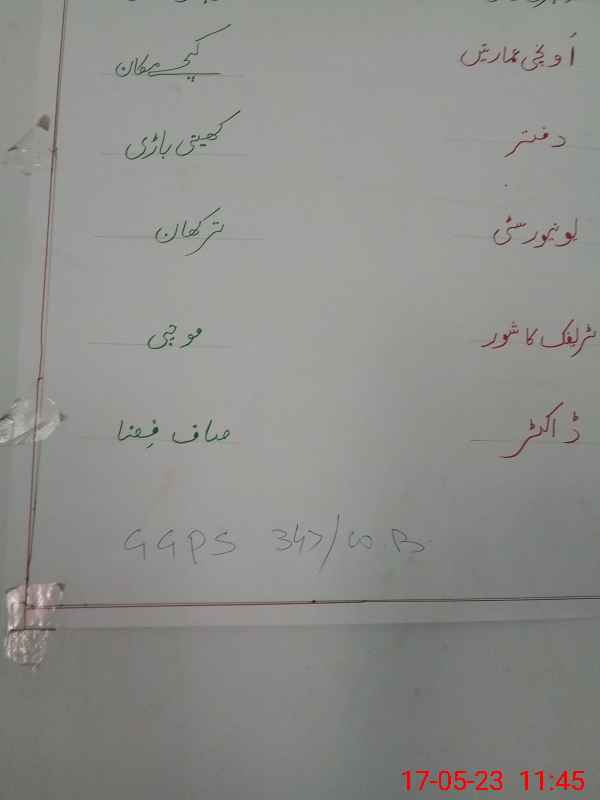 اونچی عمارتیں کچے مکان
دفتر کھیتی باڑی
یونیورسٹی ترکھان
ٹریفک کا شور موچی
ڈاکٹر صاف فضا
GGPS 347/W.B
17-05-23 11:45